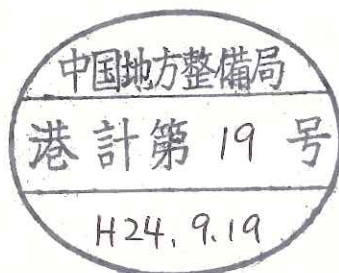 中国地方整備局
港計第19号
H24.9.19